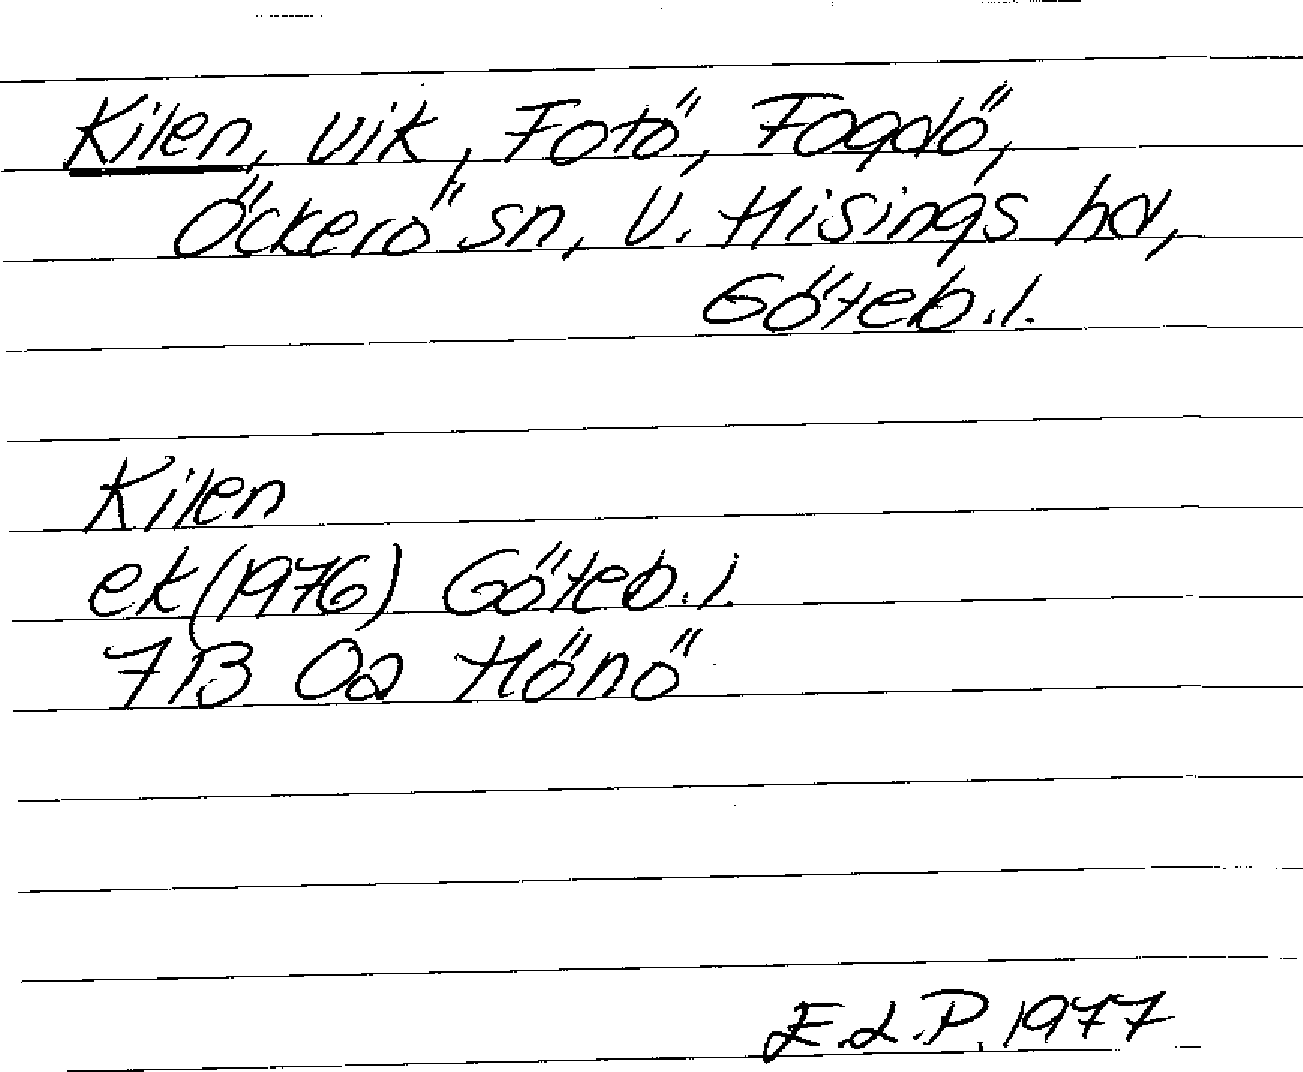 Kilen, vik, Fotö, Fogdö,
Öckerö sn, V. Hisings hd,
Göteb.l.
Kilen
ek (1976) Göteb.l.
7B 0a Hönö
E.L.P. 1977